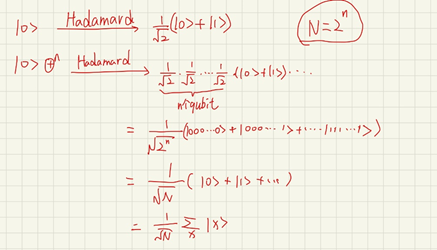 |0> Hadamard → 1/√2 (|0>+|1>) N=2ⁿ
|0> ⊕ⁿ Hadamard → 1/√2 · 1/√2 ··· 1/√2 (|0>+|1>) ····
n qubit
= 1/√2ⁿ (|000···0> + |000···1> + ···· |111···1>)
= 1/√N ( |0> + |1> + ··· )
= 1/√N Σₓ |x>